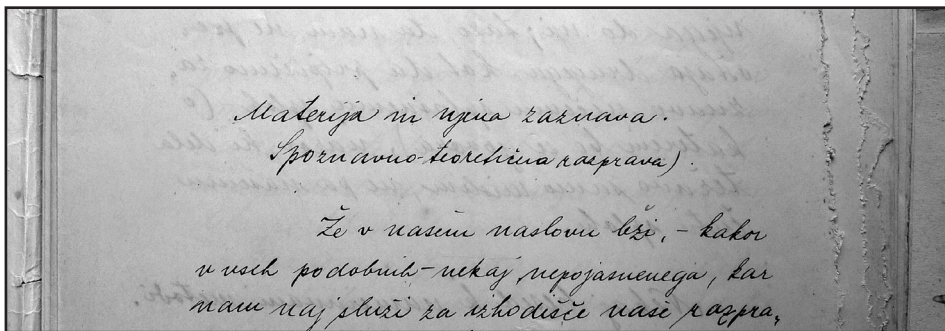 Materija in njena zaznava.
Spoznavno-teoretična rasprava).
Že v našem naslovu leži, - kakor
v vseh podobnih - nekaj nepojasnenega, kar
nam naj služi za izhodišče naše razpra„